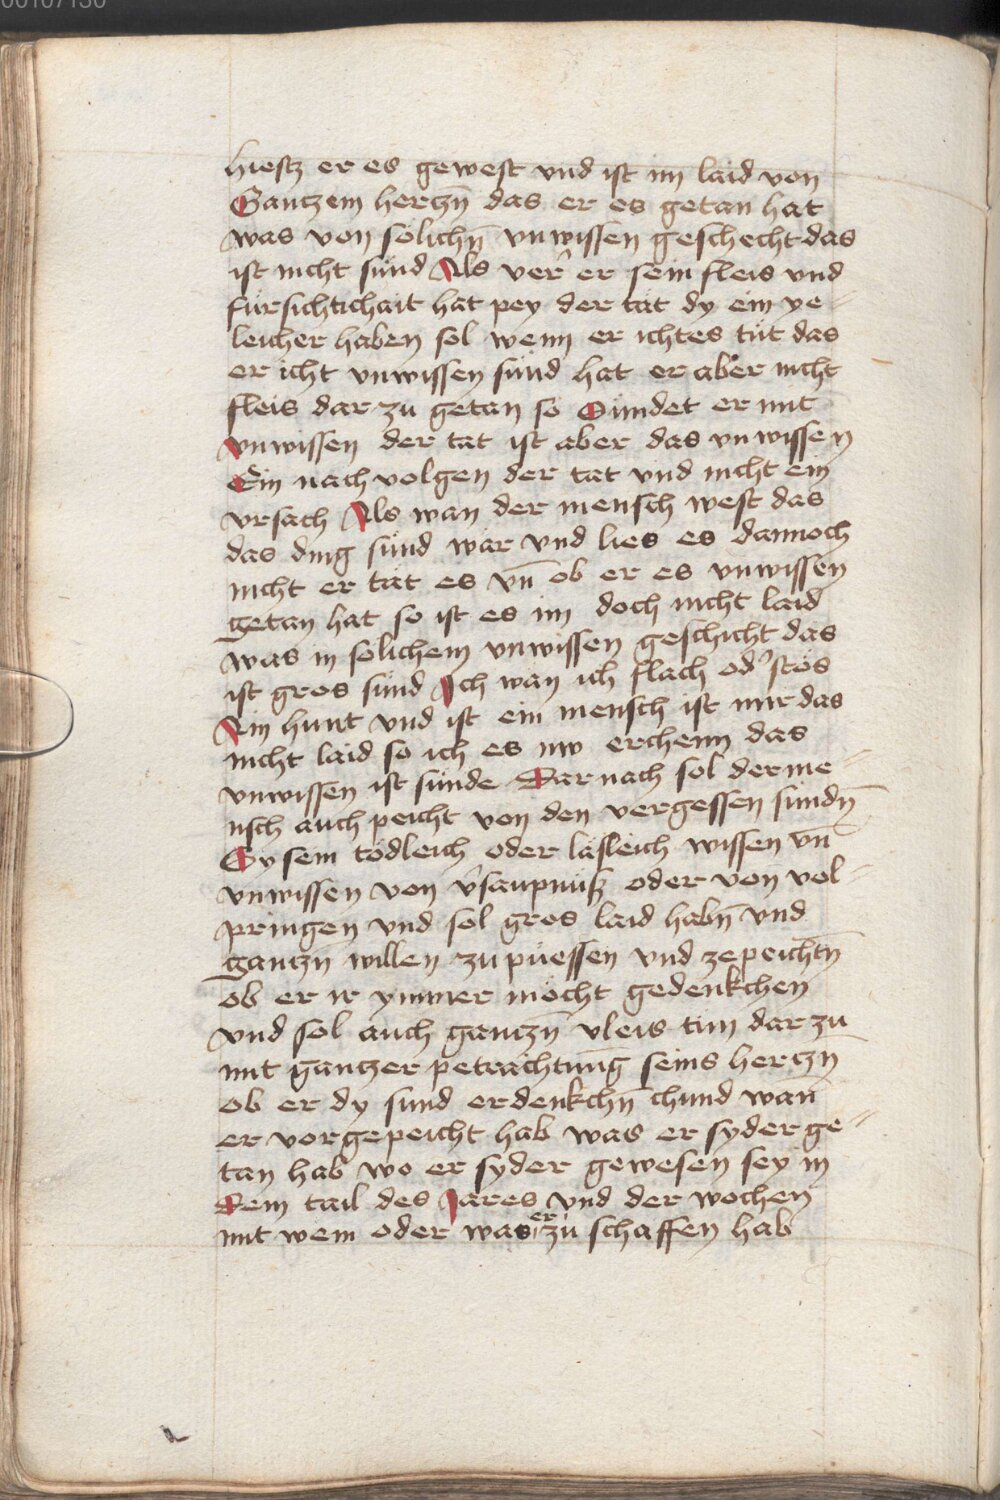 00107130
hiesz er es gewest vnd ist im laid von
Gantzem hertzn̄ das er es getan hat
was von solichn̄ vnwissen geschecht das
ist nicht sünd Als ver̄ er sein fleis vnd
fursichtichait hat pey der tat dy ein ye-
leicher haben sol wenn er ichtes tüt das
er icht vnwissen sünd hat er aber nicht
fleis dar zu getan so Sündet er mit
vnwissen der tat ist aber das vnwissen
Ein nach volgen der tat vnd nicht ein
vrsach Als wan der mensch west das
das ding sünd wär vnd lies es dannoch
nicht er tät es vn̄ ob er es vnwissen
getan hat so ist es im doch nicht laid
was in solichem vnwissen geschicht das
ist gros sünd Ich wan ich slach od' stos
Ain hunt vnd ist ein mensch ist mir das
nicht laid so ich es nw erchenn das
vnwissen ist sünde Dar nach sol der me-
nsch auch peicht von den vergessen sündn̄
Sy sein tödleich oder läsleich wissen vn̄
vnwissen von v'saupnüsz oder von vol-
pringen vnd sol gros laid habn̄ vnd
gantzn̄ willen zu püessen vnd ze peichtn̄
ob er ir ymmer möcht gedenkchen
vnd sol auch gantzn̄ vleis tun dar zu
mit gantzer petrachtung seins hertzn̄
ob er dy sund erdenkchn̄ chund wan̄
er vor gepeicht hab was er syder ge-
tan hab wo er syder gewesen sey in
Dem tail des Jares vnd der wochen
mit wem oder was er zu schaffen hab